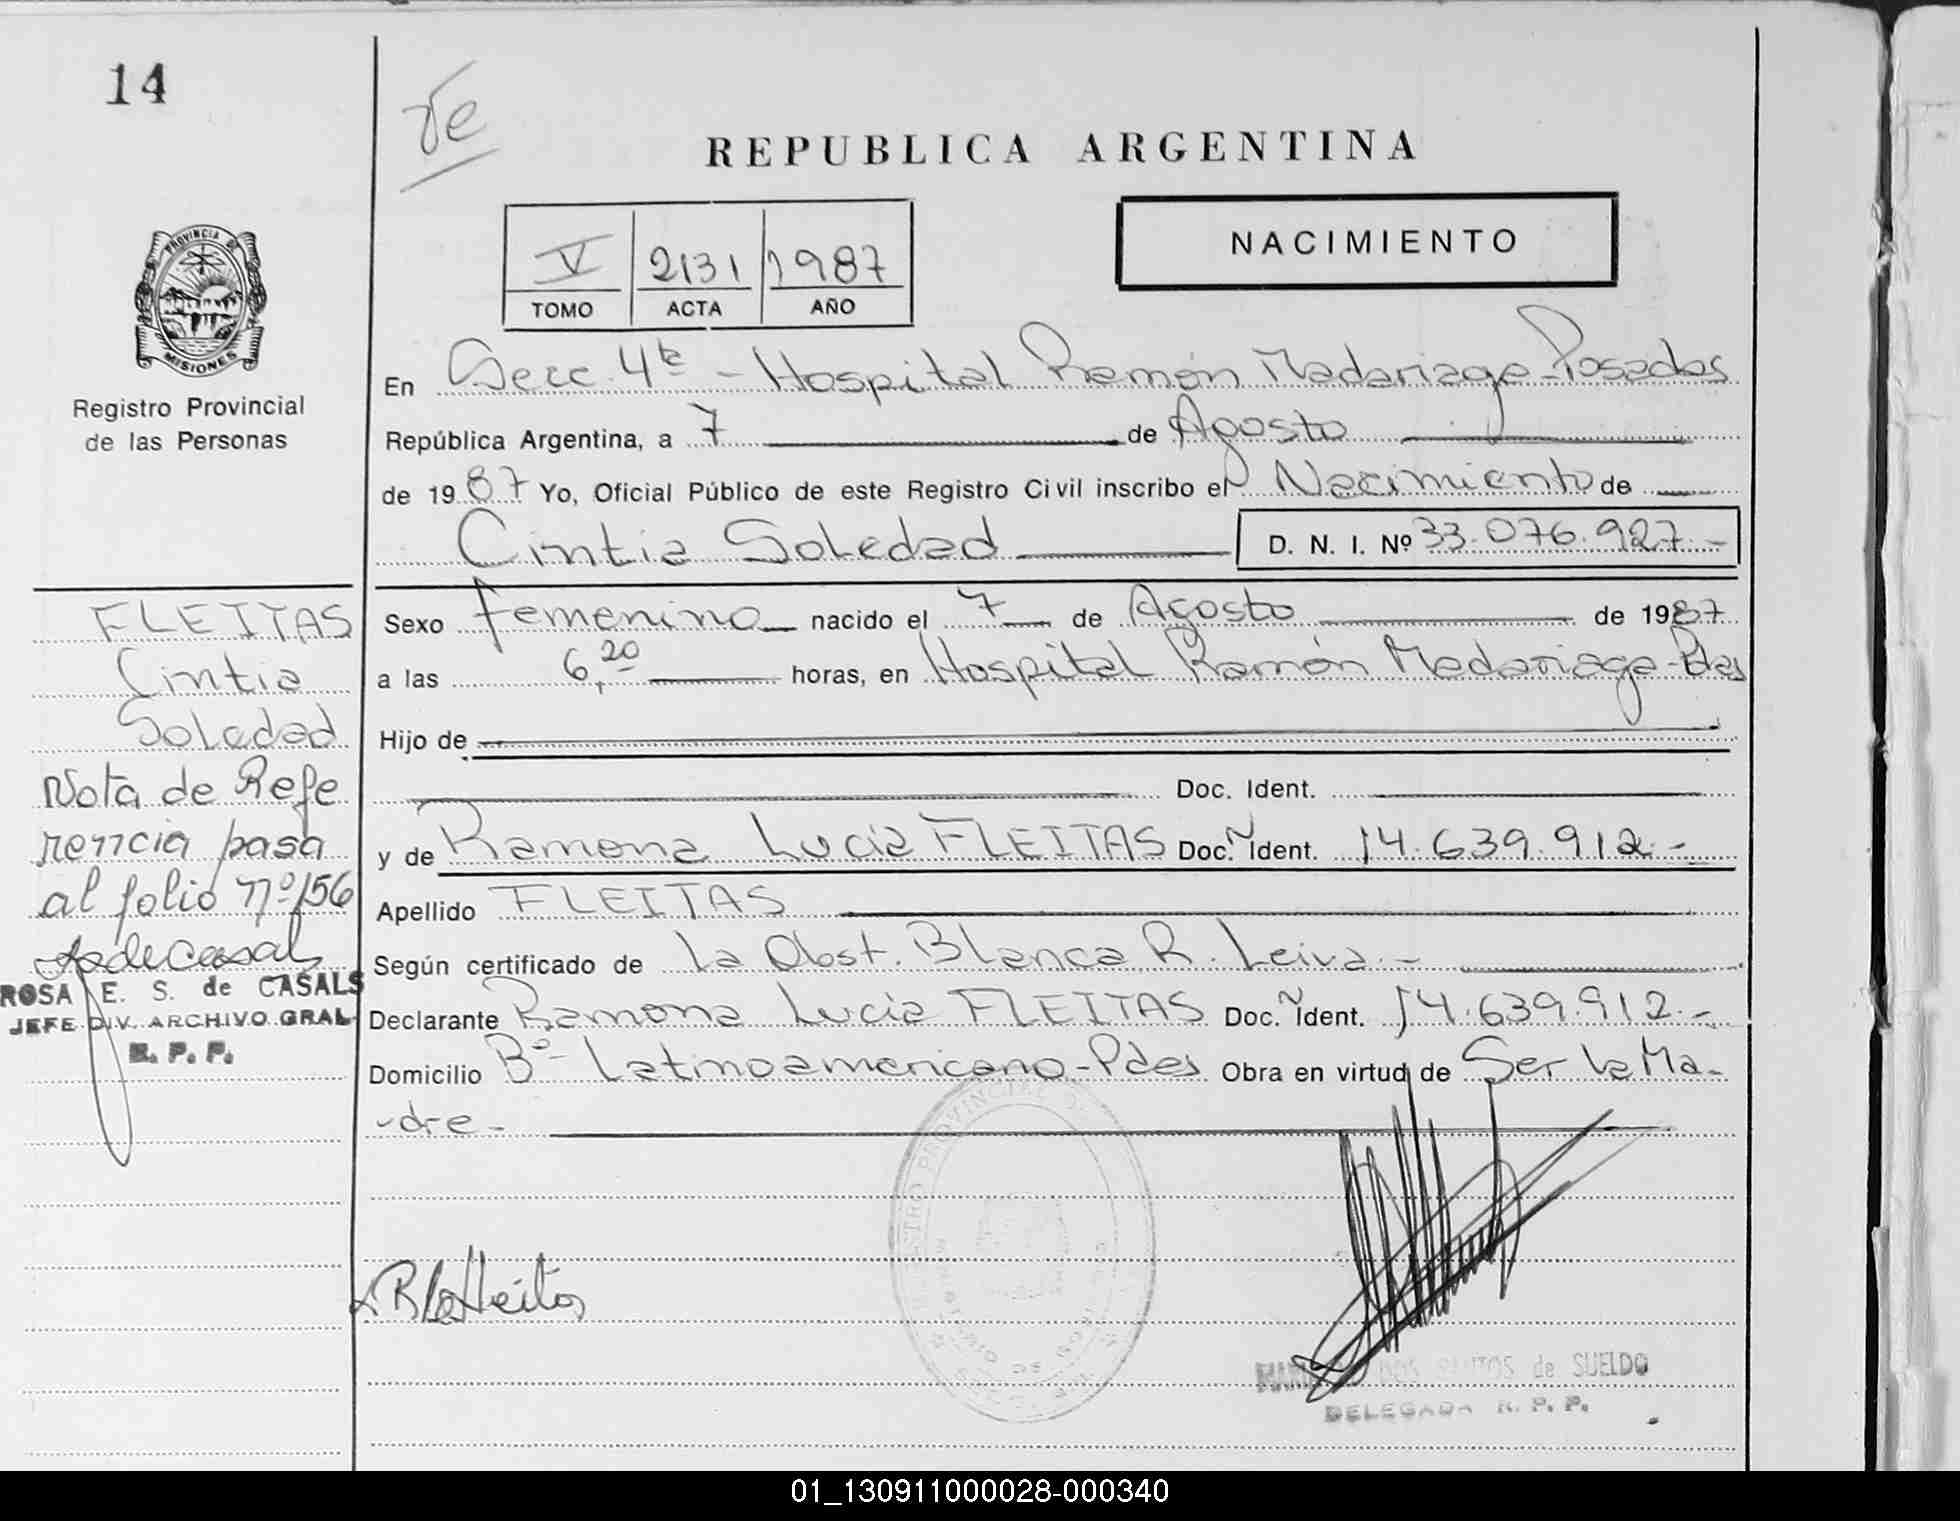 14
REPUBLICA ARGENTINA
V 2131 1987
TOMO ACTA AÑO
NACIMIENTO
PROVINCIA DE
MISIONES
Registro Provincial
de las Personas
En Secc. 4ta - Hospital Ramón Madariaga - Posadas
República Argentina, a 7 de Agosto
de 1987 Yo, Oficial Público de este Registro Civil inscribo el Nacimiento de
Cintia Soledad D. N. I. Nº 33.076.927.-
Sexo femenino nacido el 7 de Agosto de 1987
a las 6,20 horas, en Hospital Ramón Madariaga - Pdas
Hijo de
Doc. Ident.
y de Ramona Lucia FLEITAS Doc. Ident. 14.639.912.-
Apellido FLEITAS
Según certificado de La Obst. Blanca R. Leiva.-
Declarante Ramona Lucia FLEITAS Doc. Ident. 14.639.912.-
Domicilio Bº- Latinoamericano - Pdas Obra en virtud de Ser La Ma-
-dre-
FLEITAS
Cintia
Soledad
Nota de Refe
rencia pasa
al folio nº 156
ROSA E. S. de CASALS
JEFE DIV. ARCHIVO GRAL.
R. P. P.
DOS SANTOS de SUELDO
DELEGADA R. P. P.
01_130911000028-000340